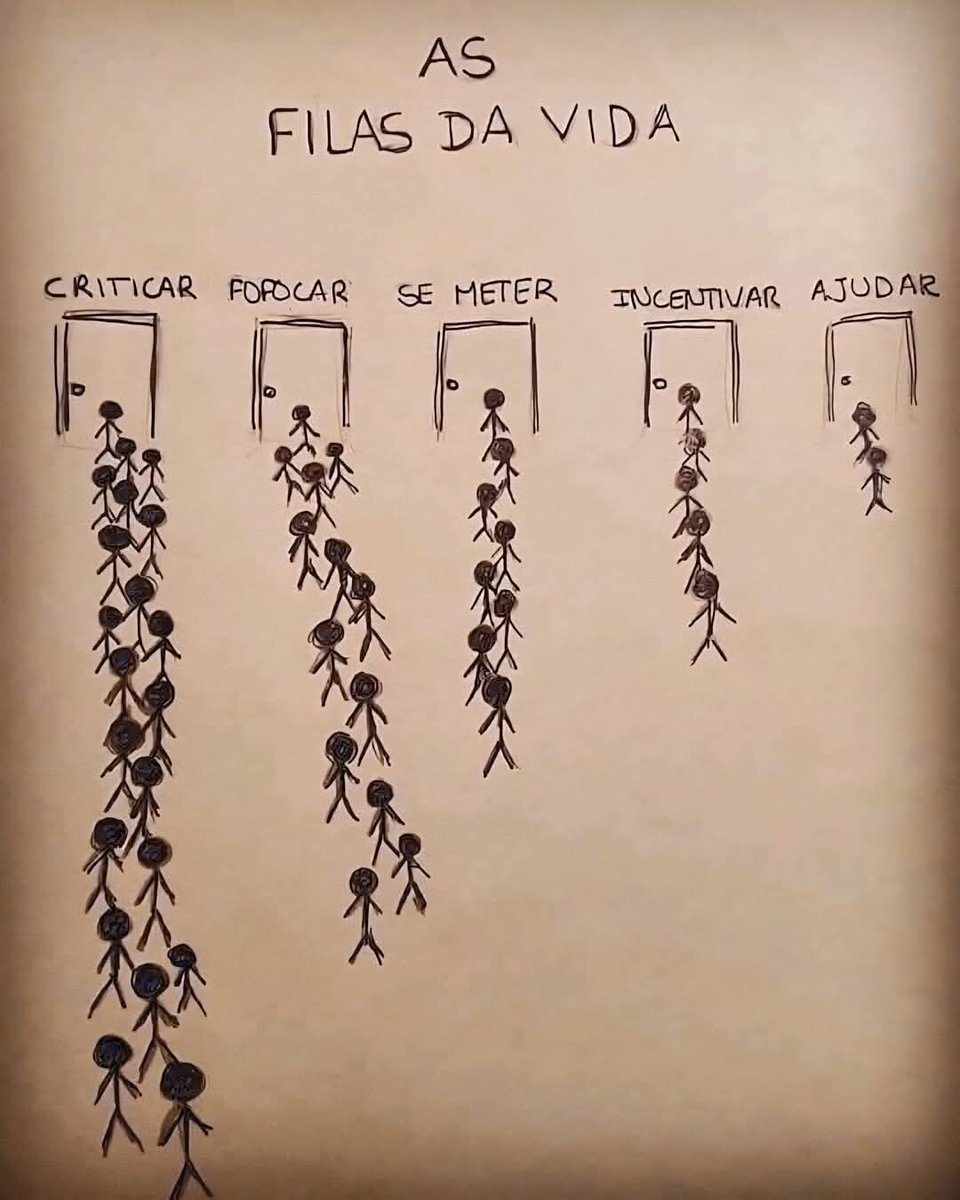 AS
FILAS DA VIDA
CRITICAR FOFOCAR SE METER INCENTIVAR AJUDAR